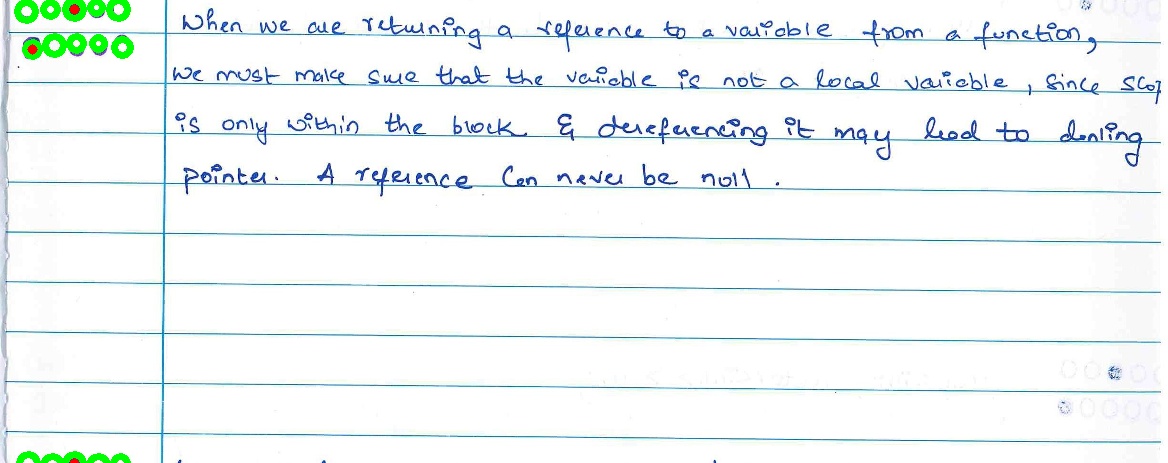 When we are returning a reference to a variable from a function,
We must make sure that the variable is not a local variable, Since scop
is only within the block & dereferencing it may lead to danling
pointer. A reference Can never be null.